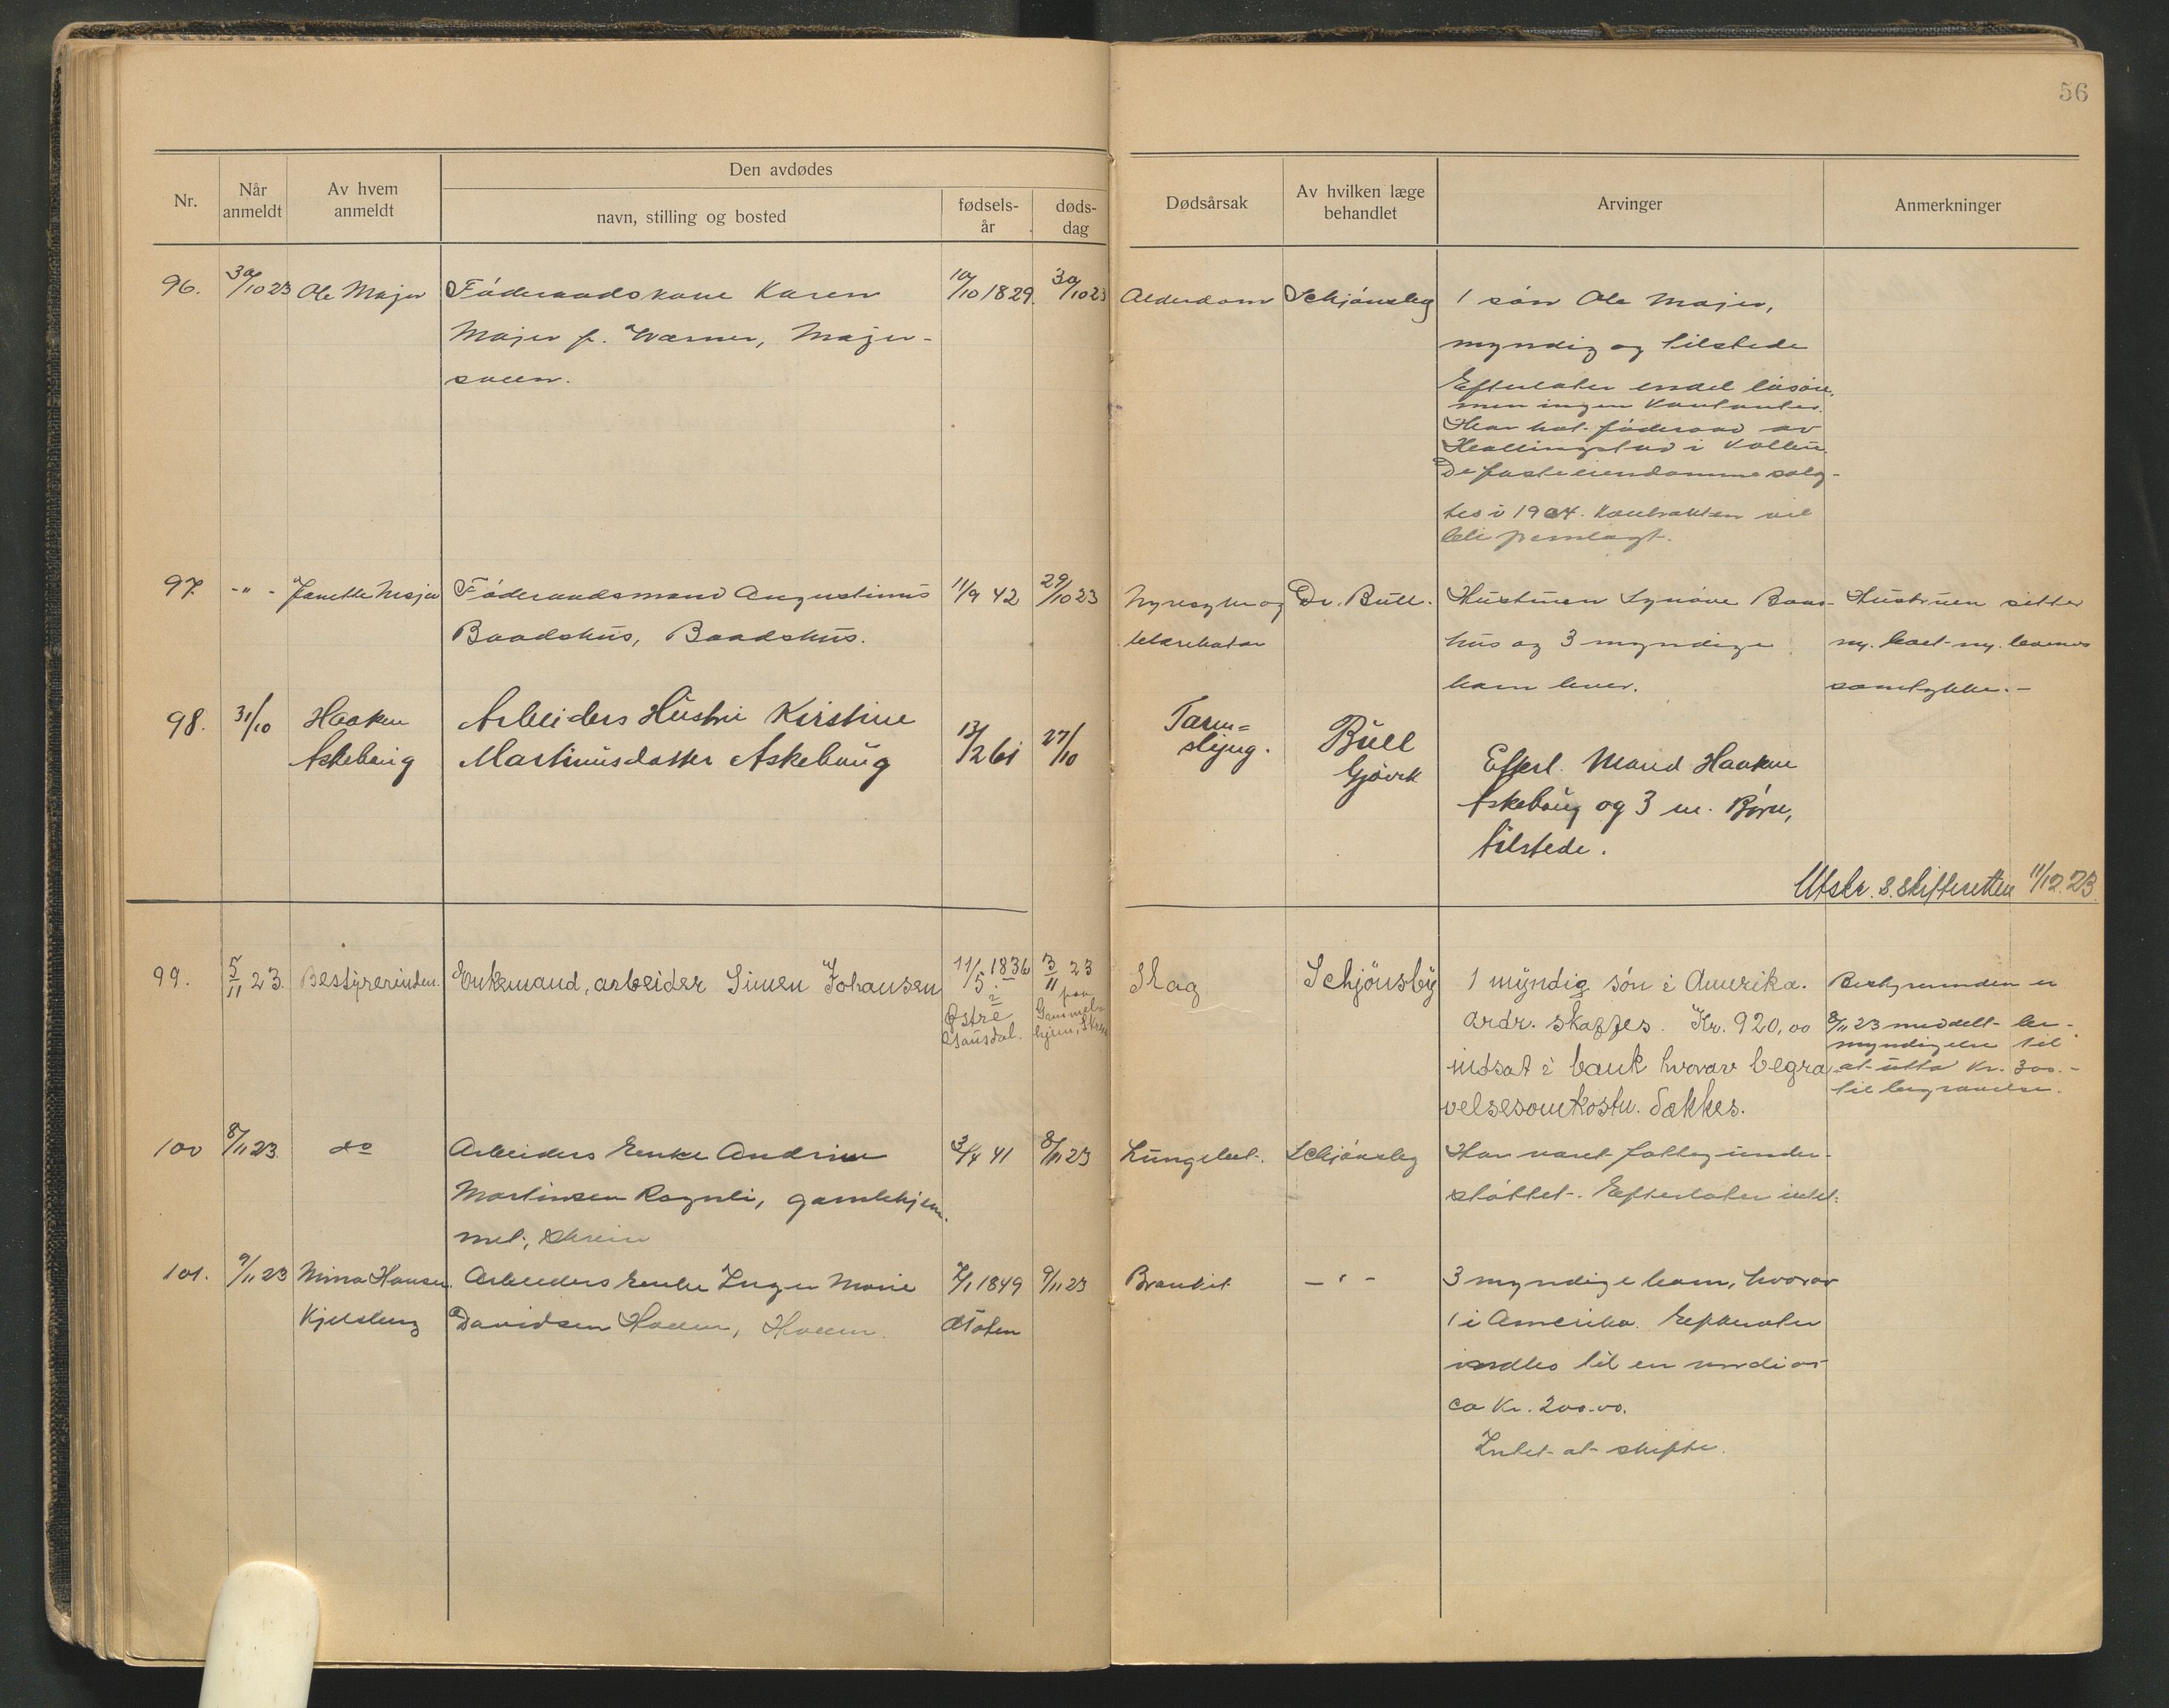 56
Nr.
Når anmeldt
Av hvem anmeldt
Den avdødes
navn, stilling og bosted
fødsels-år
døds-dag
Dødsårsak
Av hvilken læge behandlet
Arvinger
Anmerkninger
96. 30/10 23 Ole Majer Føderaadskone Karen 10/10 1829. 30/10 23 Alderdom Schjønsby 1 søn Ole Majer,
Majer f. Wærner, Majer-
myndig og tilstede
Efterlater endel løsøre,
men ingen kontanter.
Har hat føderaad av
i Kolbu.
De faste eiendomme solg-
tes i 1904. Kontrakten vil
bli fremlagt.
97. -"- Janette Majer Føderaadsmand Augustinus 11/9 42 29/10 23 Nyresyke og Dr. Bull. Hustruen Synøve Baads- Hustruen sitter
Baadshus, Baadshus.
hus og 3 myndige
barn lever. samtykke.-
98. 31/10 Haaken Arbeiders Hustru Kirstine 13/2 61 27/10 Tarm=
Askebaug Martinusdatter Askebaug slyng. Bull
Gjøvik
Efterl. Mand Haaken
Askebaug og 3 m. Børn,
tilstede.
Utskr. s. skifteretten 11/12.23.
99. 5/11 23. Bestyrerinden. Enkemand, arbeider Simen Johansen 11/5. 1836 3/11 23 Slag Schjønsby 1 myndig søn i Amerika. Bestyrerinden er
Østre Gausdal.
paa Gammelhjem, Skrei
adr. skaffes. Kr. 920,00 8/11 23 meddelt be-
myndigelse til
indsat i bank hvorav begra- at utta Kr. 300.-
til begravelse.
velsesomkostn. dækkes.
100 8/11 23. do Arbeiders Enke Andrine 3/4 41 8/11 23 Lungebet. Schjønsby Har været fattigunder-
Martinsen Rognli, gamlehjem- støttet. Efterlater intet.
met, Skreia
101. 9/11 23 Nina Hansen Arbeiders enke Inger Marie 7/1 1849 9/11 23 Bronkit -"- 3 myndige barn, hvorav
Kjelsberg Davidsen Hoeen, Hoeen. Ø Toten 1 i Amerika. Efterlater
indbo til en verdi av
ca Kr. 200.00.
Intet at skifte.